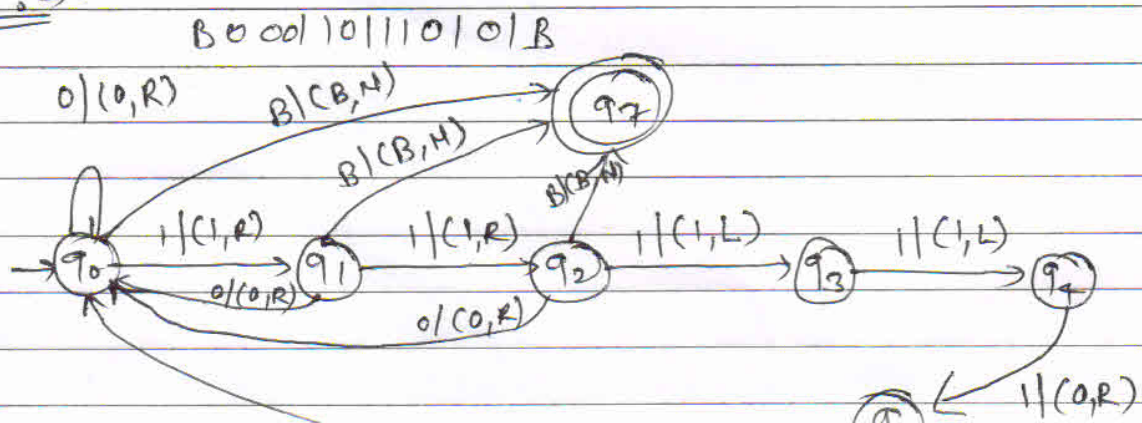 B 0 0 0 1 1 0 1 1 1 0 1 0 1 B
0/(0,R)
B/(B,N)
q7
B/(B,N)
B/(B,N)
q0
1/(1,R)
q1
1/(1,R)
q2
1/(1,L)
q3
1/(1,L)
q4
0/(0,R)
0/(0,R)
1/(0,R)